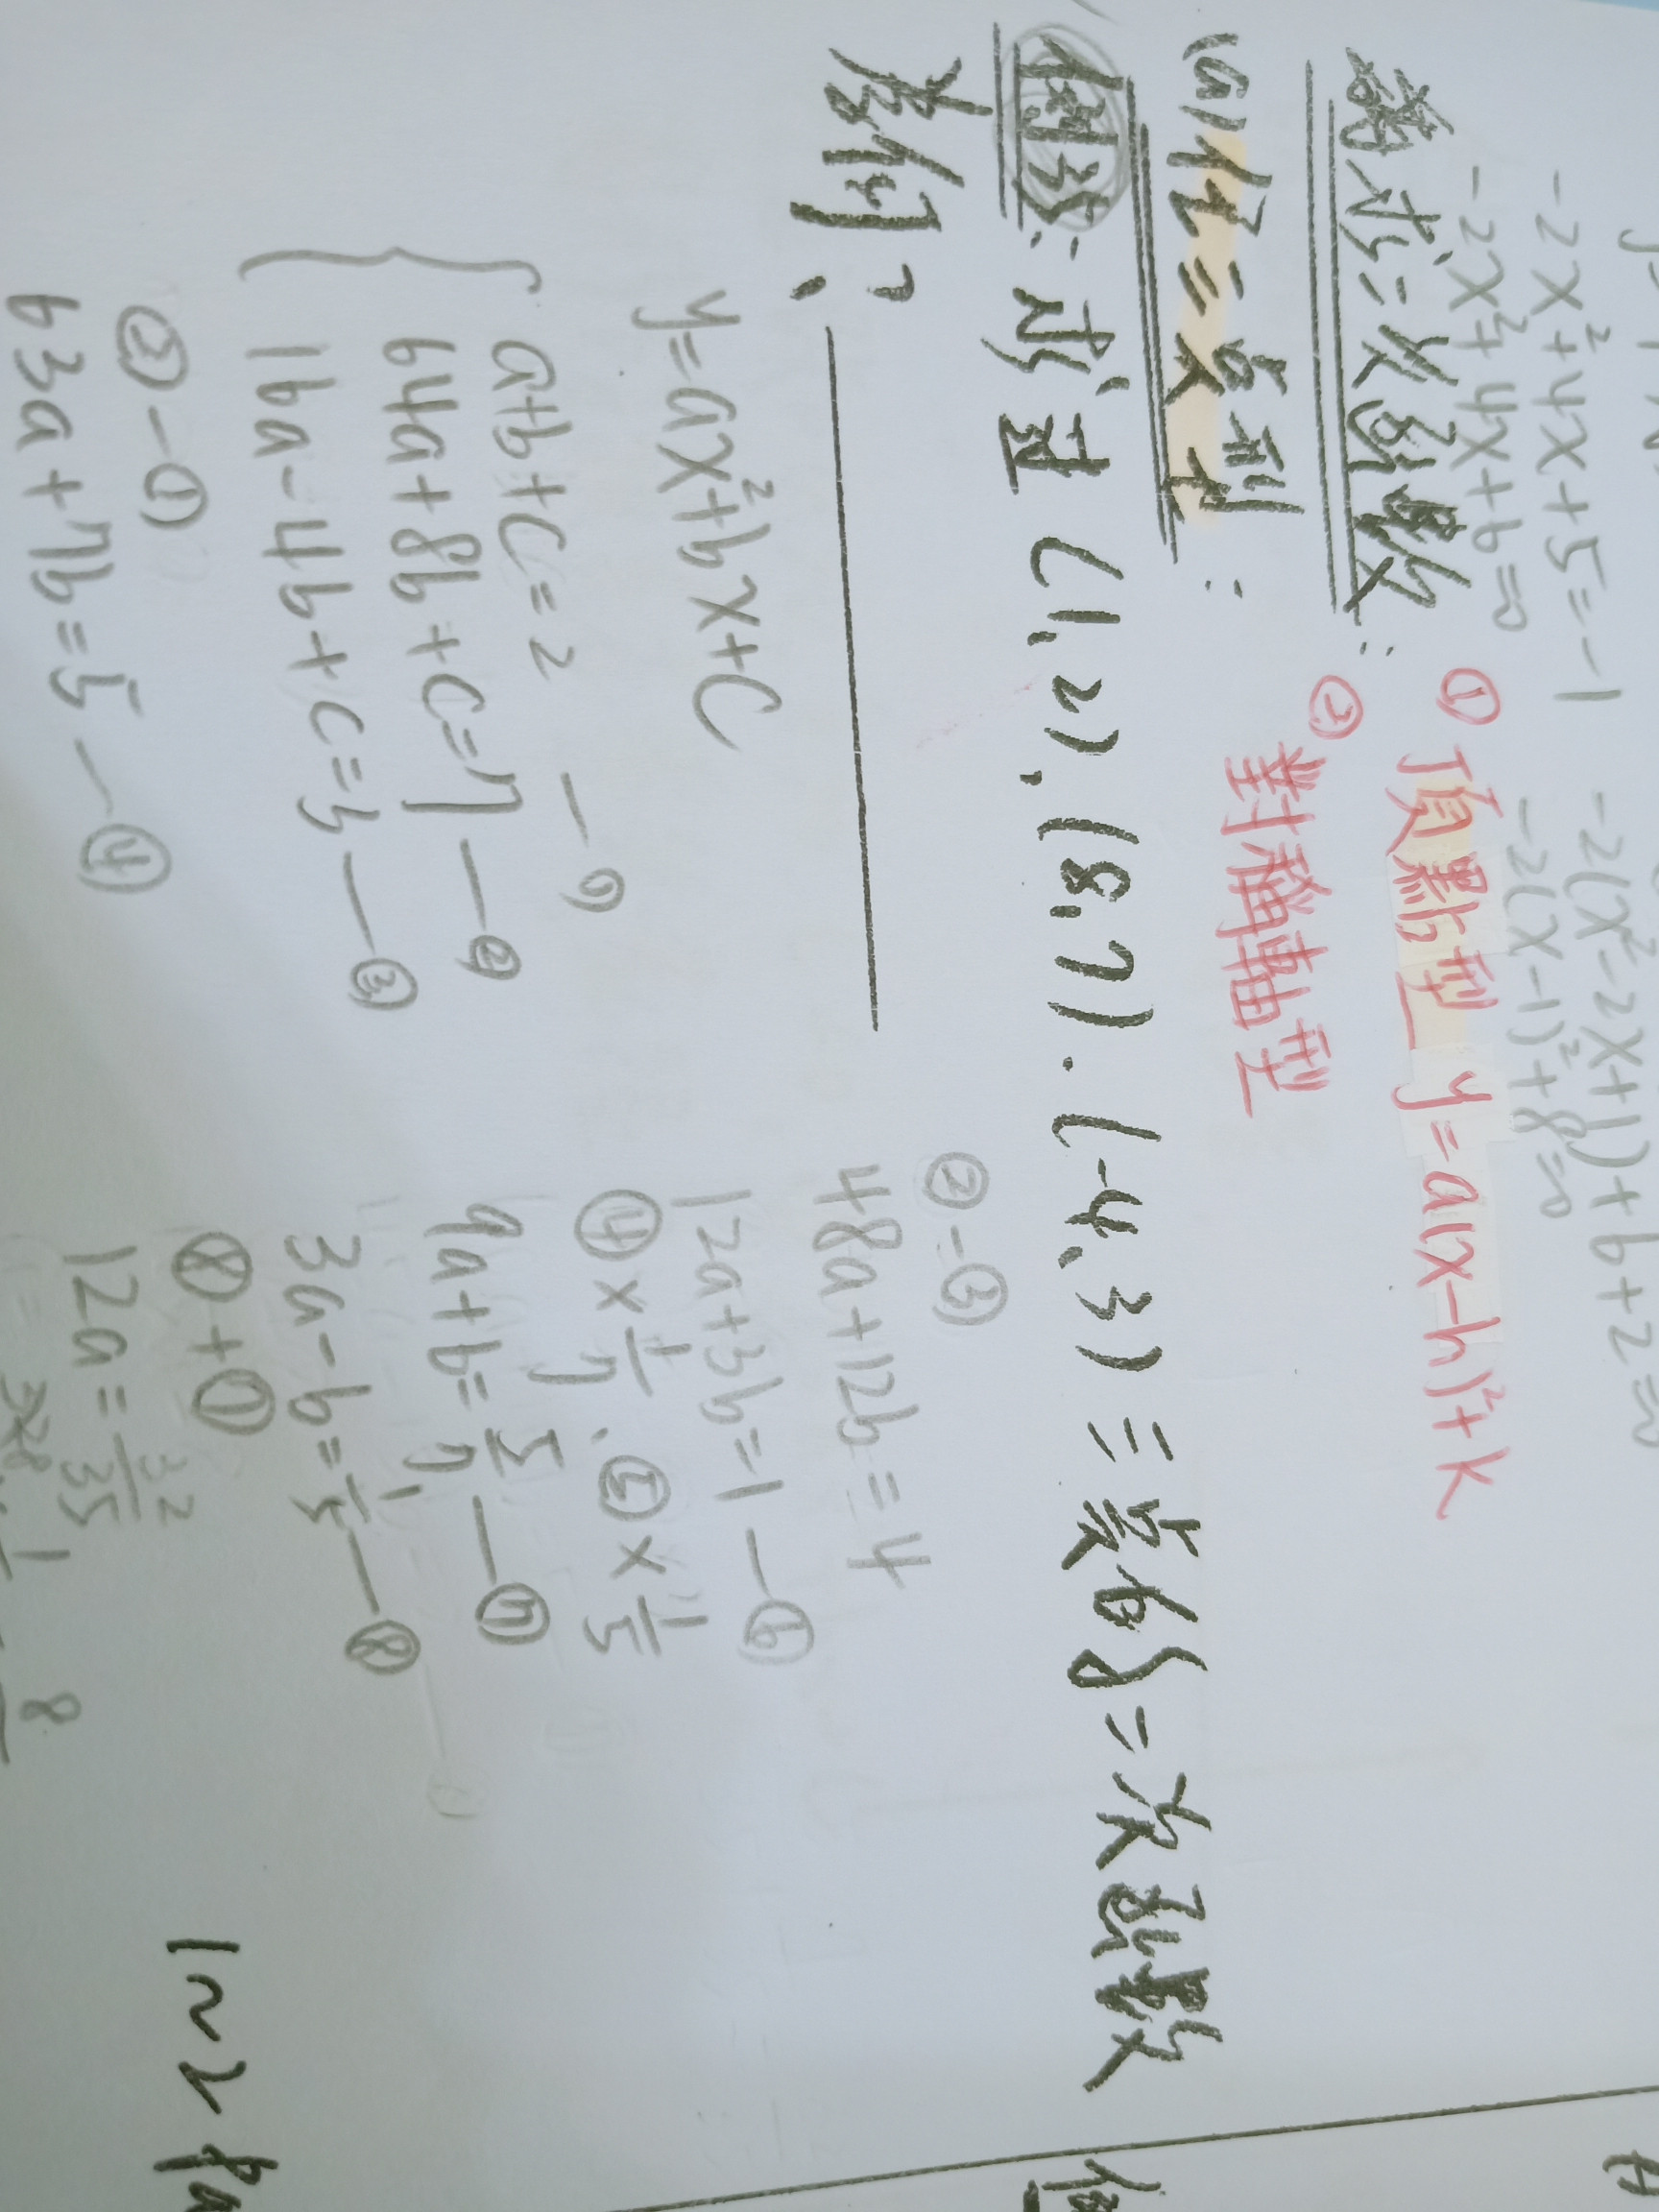 -2x²+4x+5=-1
-2x²+4x+6=0
-2(x²-2x+1)+6+2=0
-2(x-1)²+8=0
求二次函數:
① 頂點型 y=a(x-h)²+k
② 對稱軸型
(a)任三点型:
例35: 求过(1,2),(8,7).(-4,3)三點的二次函數
為何?:
y=ax²+bx+c
a+b+c=2 —①
64a+8b+c=7 —②
16a-4b+c=3 —③
②-①
63a+7b=5 —④
②-③
48a+12b=4
12a+3b=1 —⑥
④×1/7、⑤×1/5
9a+b=5/7 —⑦
3a-b=1/5 —⑧
⑧+⑦
12a=32/35